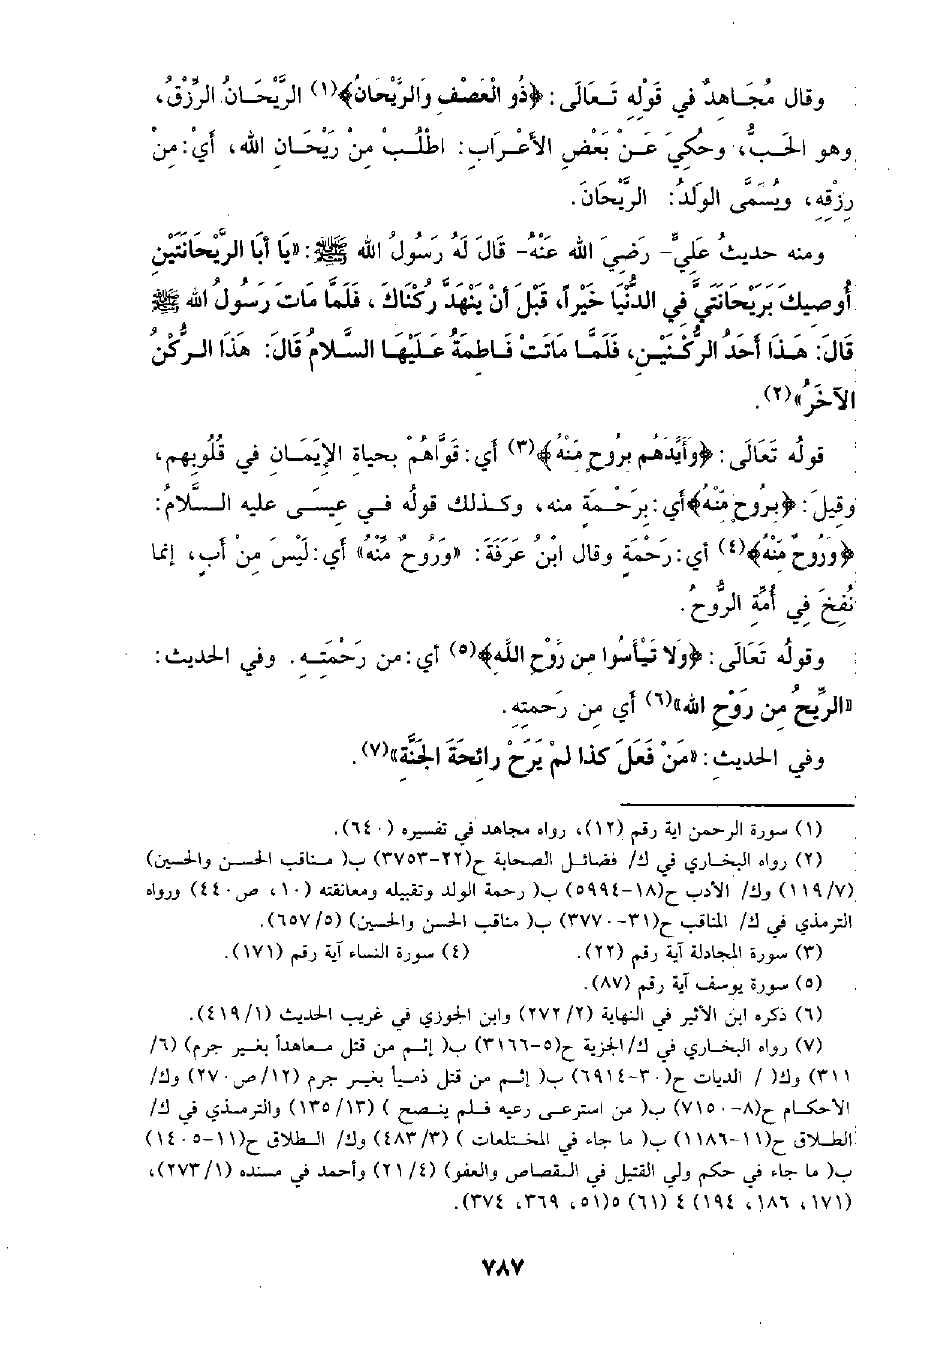 وقال مُجَاهدٌ في قَوْله تَعَالَى: ﴿ذُو الْعَصْفِ وَالرَّيْحَانُ﴾(١) الرَّيْحَانُ الرِّزْقُ،
وهو الحَبُّ، وحُكِيَ عَنْ بَعْضِ الأَعْرَابِ: اطْلُبْ مِنْ رَيْحَانِ الله، أَيْ: مِنْ
رِزْقِهِ، ويُسَمَّى الوَلَدُ: الرَّيْحَانَ.
ومنه حديثُ عَلِيٍّ- رَضِيَ الله عَنْهُ- قَالَ لَهُ رَسُولُ الله ﷺ: «يَا أَبَا الرَّيْحَانَتَيْنِ
أُوصِيكَ بَرَيْحَانَتَيَّ فِي الدُّنْيَا خَيْراً، قَبْلَ أَنْ يَنْهَدَّ رُكْنَاكَ، فَلَمَّا مَاتَ رَسُولُ الله ﷺ
قَالَ: هَذَا أَحَدُ الرُّكْنَيْنِ، فَلَمَّا مَاتَتْ فَاطِمَةُ عَلَيْهَا السَّلامُ قَالَ: هَذَا الرُّكْنُ
الآخَرُ»(٢).
قولُه تَعَالَى: ﴿وَأَيَّدَهُم بِرُوحٍ مِنْهُ﴾(٣) أَي: قَوَّاهُمْ بحياةِ الإِيَمَانِ فِي قُلُوبِهِم،
وقِيلَ: ﴿بِرُوحٍ مِّنْهُ﴾أَي: بِرَحْمَةٍ منه، وكذلك قولُه في عِيسَى عليه السَّلامُ:
﴿وَرُوحٌ مِّنْهُ﴾(٤) أَي: رَحْمَةٍ وقال ابْنُ عَرَفَةَ: «وَرُوحٌ مِّنْهُ» أَي: لَيْسَ مِنْ أَبٍ، إنما
نُفِخَ فِي أُمِّهِ الرُّوحُ.
وقولُه تَعَالَى: ﴿وَلا تَيْأَسُوا مِن رَّوْحِ اللَّهِ﴾(٥) أَي: مِن رَحْمَتِهِ. وفي الحديث:
«الرِّيحُ مِن رَوْحِ الله»(٦) أَي مِن رَحمتِهِ.
وفي الحديثِ: «مَنْ فَعَلَ كذا لمْ يَرَحْ رائِحَةَ الجَنَّةِ»(٧).
(١) سورة الرحمن اية رقم (١٢)، رواه مجاهد في تفسيره (٦٤٠).
(٢) رواه البخاري في ك/ فضائل الصحابة ح(٢٢-٣٧٥٣) ب( مناقب الحسن والحسين)
(١١٩/٧) وك/ الأدب ح(١٨-٥٩٩٤) ب( رحمة الولد وتقبيله ومعانقته (١٠، ص٤٤٠) ورواه
الترمذي في ك/ المناقب ح(٣١-٣٧٧٠) ب( مناقب الحسن والحسين) (٦٥٧/٥).
(٣) سورة المجادلة آية رقم (٢٢). (٤) سورة النساء آية رقم (١٧١).
(٥) سورة يوسف آية رقم (٨٧).
(٦) ذكره ابن الأثير في النهاية (٢٧٢/٢) وابن الجوزي في غريب الحديث (٤١٩/١).
(٧) رواه البخاري في ك/ الجزية ح(٥-٣١٦٦) ب( إثم من قتل معاهداً بغير جرم) (٦/
٣١١) وك( / الديات ح(٣٠-٦٩١٤) ب( إثم من قتل ذمياً بغير جرم (١٢/ص٢٧٠) وك/
الأحكام ح(٨-٧١٥٠) ب( من استرعى رعيه فلم ينصح ) (١٣٥/١٣) والترمذي في ك/
الطلاق ح(١١-١١٨٦) ب( ما جاء في المختلعات ) (٤٨٣/٣) وك/ الطلاق ح(١١-١٤٠٥)
ب( ما جاء في حكم ولي القتيل في القصاص والعفو) (٢١/٤) وأحمد في مسنده (٢٧٣/١)،
(١٧١، ١٨٦، ١٩٤) ٤ (٦١) ٥(٥١، ٣٦٩، ٣٧٤).
٧٨٧